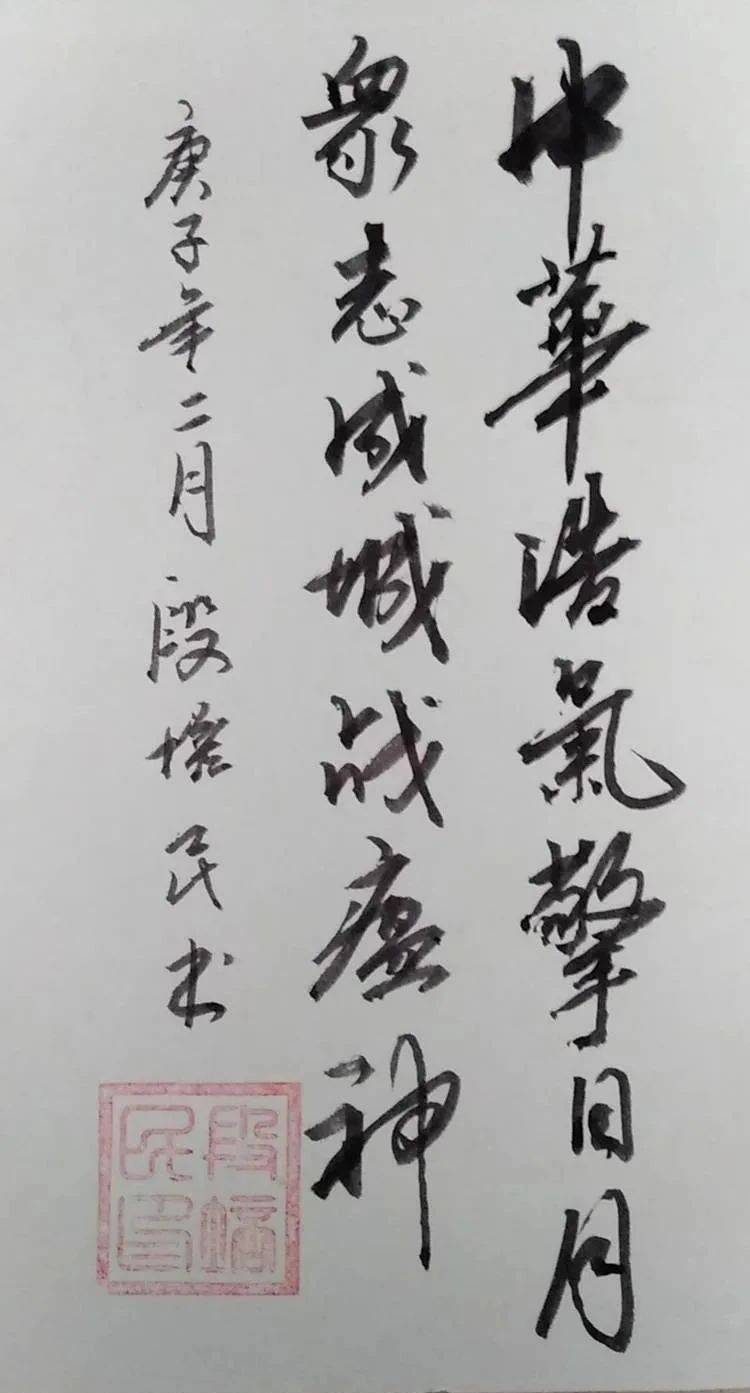 中華浩氣擎日月
衆志成城战瘟神
庚子年二月 段民书
段民印